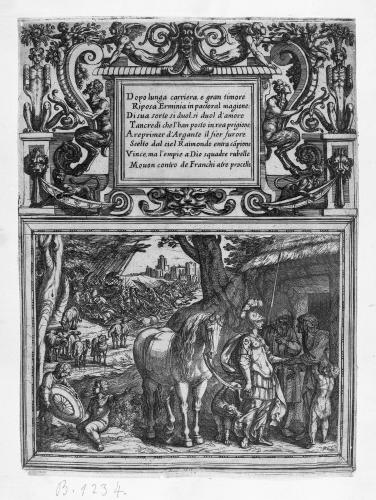 Dopo lunga carriera, e gran timore
Riposa Erminia in pastoral magione.
Di sua sorte si duol, si duol d'amore
Tancredi che l'han posto in rea prigione
A reprimer d'Argante il fier furore
Scelto dal ciel Raimondo entra
Vince, ma l'empie a Dio squadre rubelle
Mouon contro de Franchi atre procelle
B. 1234.